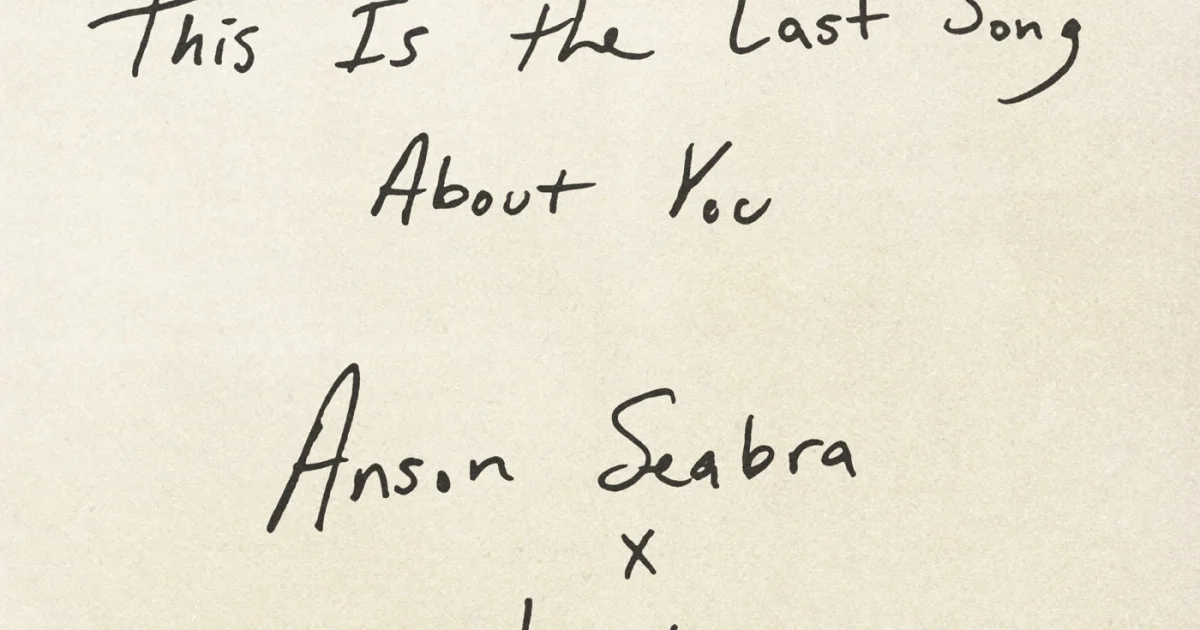 This Is the Last Song
About You
Anson Seabra
x